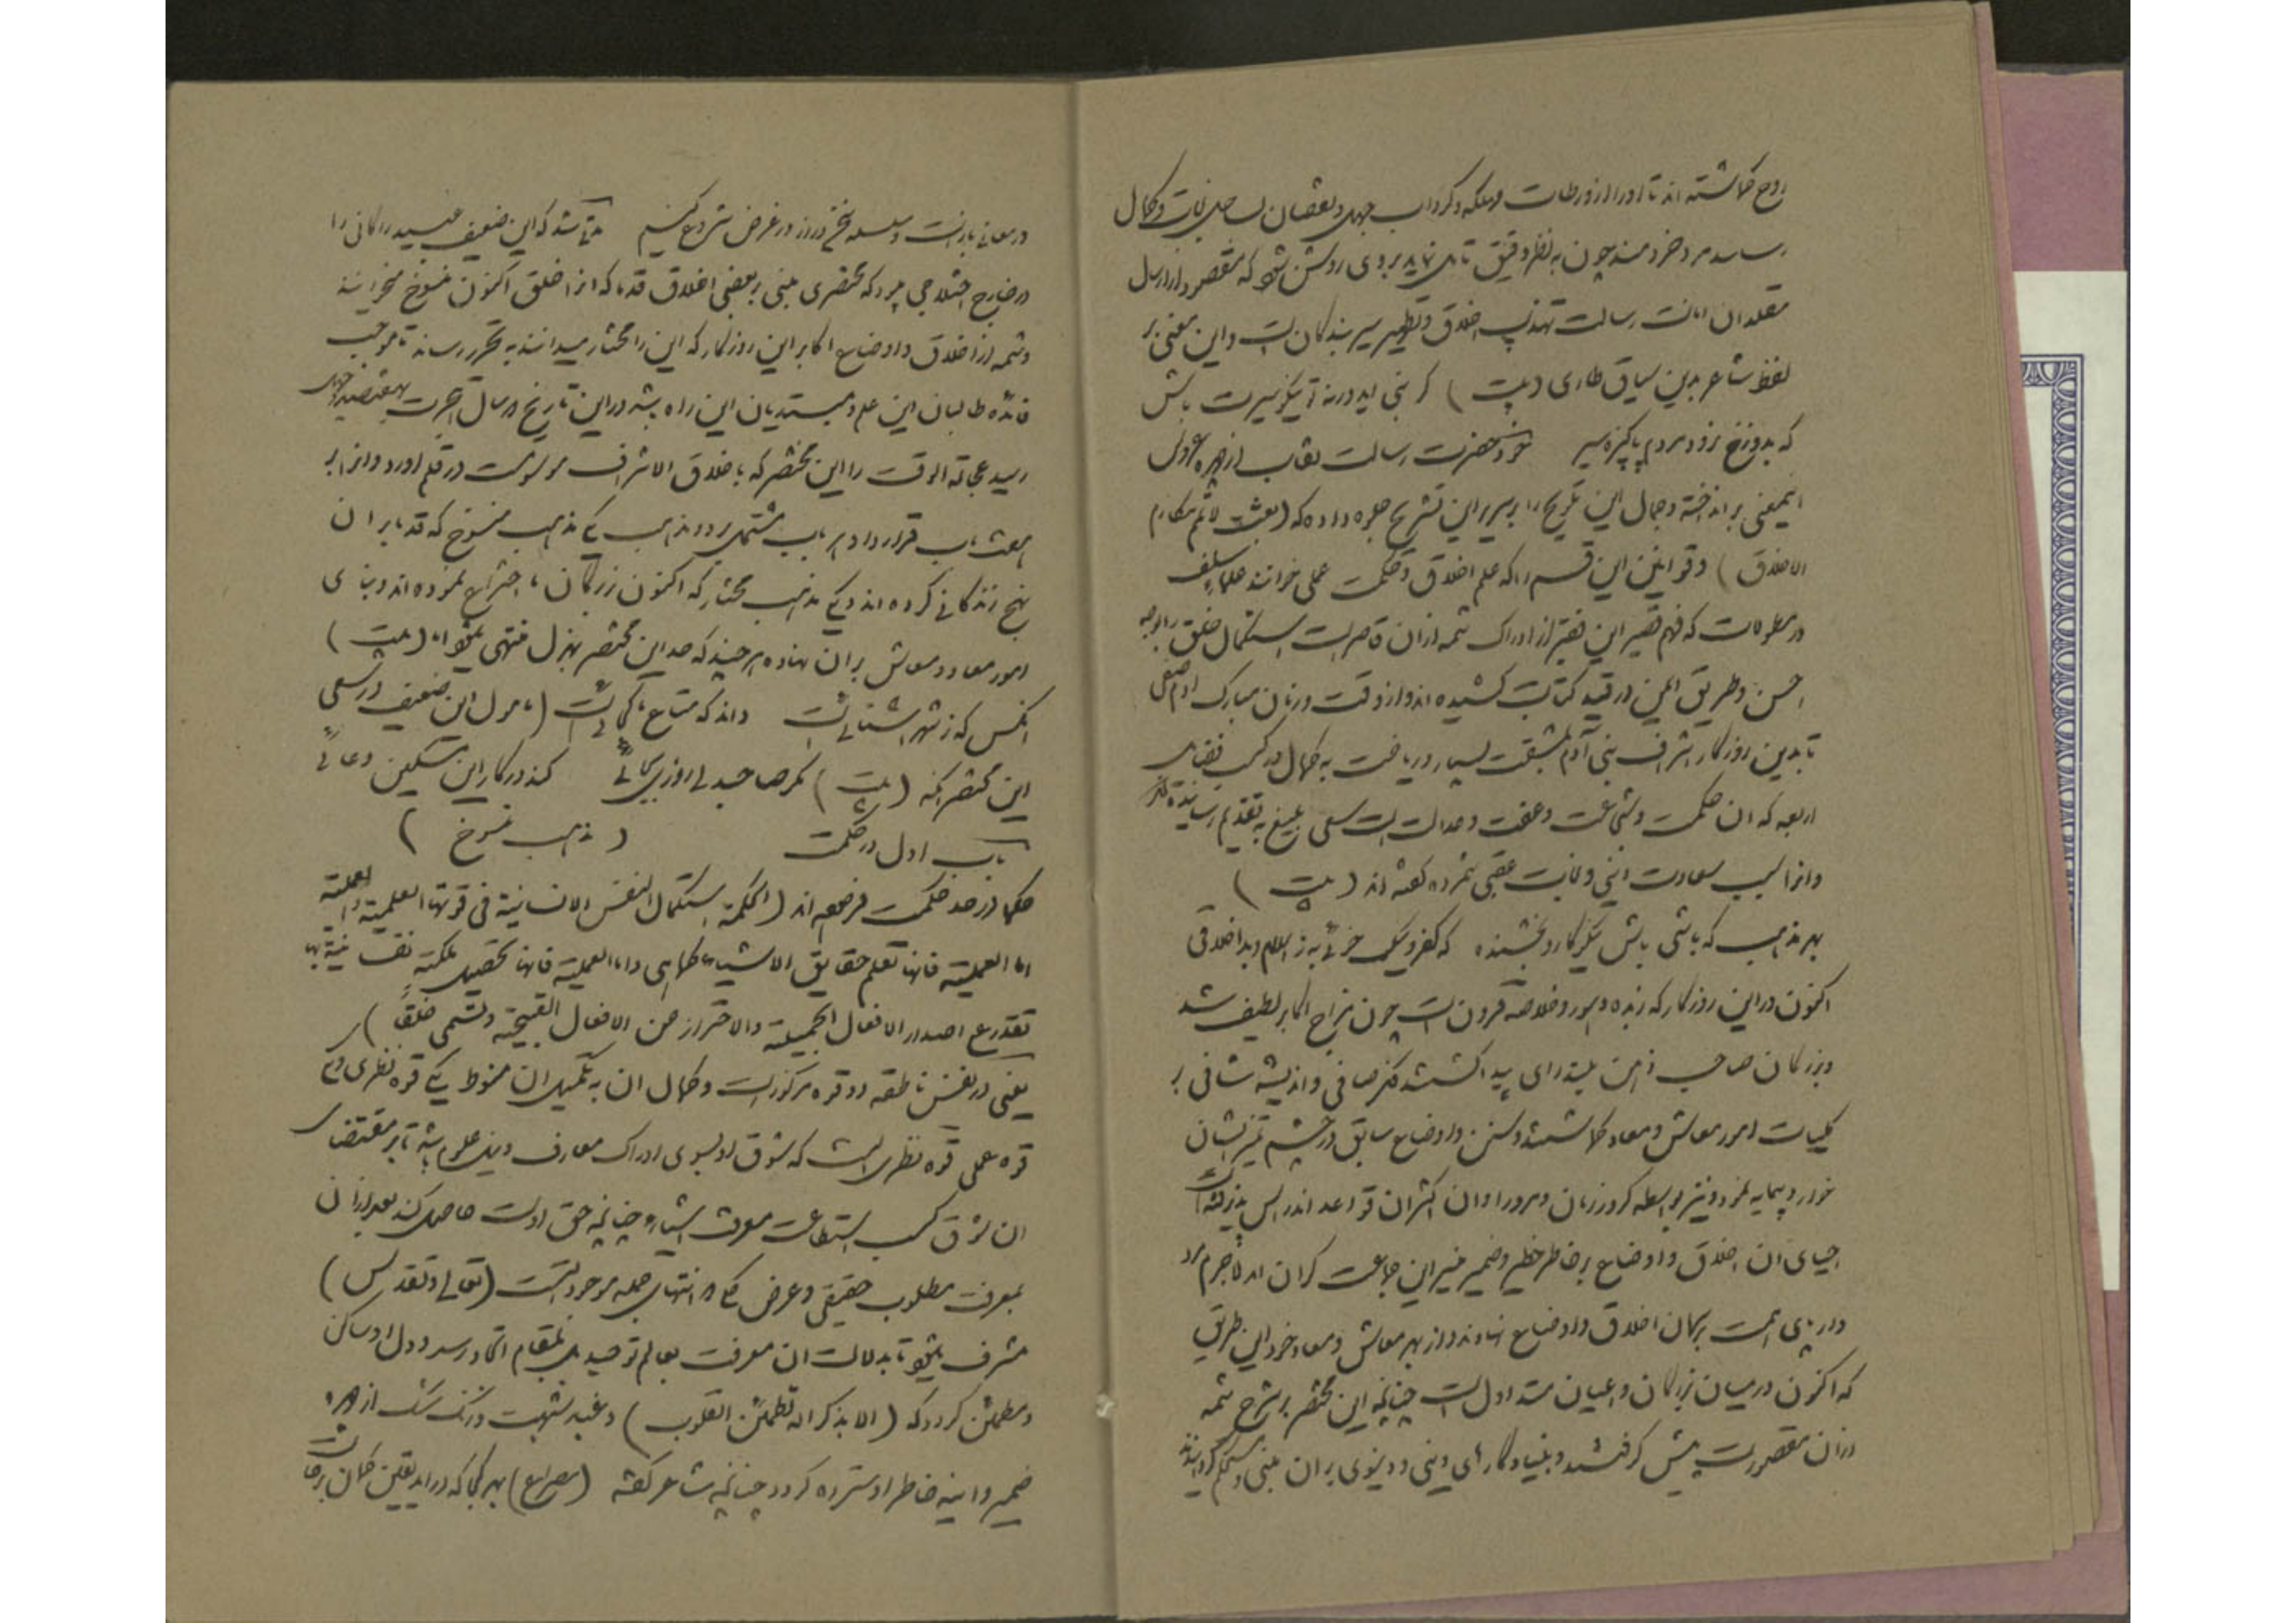 روح گماشته اند تا او را از ورطات مهلکه و گرداب جهل و نقصان بساحل نجات و کمال
رساند مرد خردمند چون به نظر دقیق تامل نماید بر وی روشن شود که مقصود از ارسال
مقلدان امانت رسالت تهذیب اخلاق و تطهیر سیر بندکان است و این معنی بر
لفظ شاعر بدین سیاق طاری (بیت) کر نبی اید ورنه تو نیکو سیرت باش
که بدوزخ نرود مردم پاکیزه سیر خود حضرت رسالت نقاب از چهره عروس
اینمعنی بر انداخته و جمال این تلویح را بر سریر این تشریح جلوه داده که (بعثت لاتمم مکارم
الاخلاق) و قوانین این قسم را که علم اخلاق و حکمت عملی خوانند علماء سلف
در مطولات که فهم قصیر این فقیر از ادراک شمه از ان قاصر است باستکمال خلق را بوجه
احسن و طریق ایمن در قید کتابت کشیده اند و از وقت و زمان مبارک ادم صفی
تا بدین روزکار اشراف بنی آدم بمشقت بسیار و ریاضت به کمال در کسب فضایل
اربعه که ان حکمت و شجاعت و عفت و عدالت است سعی بلیغ به تقدیم رسانیده اند
و انرا سبب سعادت دنیی و نجات عقبی شمرده کفته اند (بیت)
بهر مذهب که باشی باش نیکو کار و بخشنده که کفر و نیک خوئی به ز اسلام و بد اخلاقی
اکنون در این روزکار که زبده دهور و خلاصه قرون است چون مزاج اکابر لطیف شد
و بزرکان صاحب ذهن بلند رای پیدا کشتند فکر صافی و اندیشه شافی بر
کلیات امور معاش و معاد کماشتند و سنن و اوضاع سابق در چشم تمیز ایشان
خوار و بیمایه نمود و نیز بواسطه کرور زمان و مرور اوان اکثر ان قواعد اندراس پذیرفته
احیای ان اخلاق و اوضاع بر خاطر خطیر و ضمیر منیر این جماعت کران امد لاجرم مرد
وار پای همت بر کمان اخلاق و اوضاع نهادند و از بهر معاش و معاد خود این طریق
که اکنون در میان بزرکان و اعیان متداول است چنانچه این مختصر بر شرح شمه
از ان مقصور است پیش کرفتند و بنیاد کارهای دینی و دنیوی بر ان مبنی و مستحکم کردانیدند
در معانی باز است و سلسله سخن دراز در غرض شروع کنیم مدتی شد که این ضعیف عبید زاکانی را
در خارج اختلاجی میبرد که مختصری مبنی بر بعضی اخلاق قدما که انرا خلق اکنون منسوخ میخوانند
و شمه از اخلاق و اوضاع اکابر این روزکار که این را مختار میدانند به تحریر رساند تا موجب
فائده طالبان این علم و مبتدیان این راه باشد در این تاریخ در سال هجرت بهفتصد چهل
رسید عجالة الوقت را این مختصر که باخلاق الاشراف موسومست در قلم اورد و انرا بر
هفت باب قرار داد هر باب مشتمل بر دو مذهب یکی مذهب منسوخ که قدما بر ان
نهج زندکانی کرده اند و یکی مذهب مختار که اکنون بزرکان ما اختراع نموده اند و بنای
امور معاد و معاش بر ان نهاده هر چند که حد این مختصر بهزل منتهی میشود اما (بیت)
انکس که ز شهر اشنائیست داند که متاع ما کجائیست (مامول این ضعیف در سعی
این مختصر انکه (بیت) مکر صاحبدلی روزی بجائی کند در کار این مسکین دعائی
باب اول در حکمت (مذهب منسوخ)
حکما در حد حکمت فرموده اند (الحکمة استکمال النفس الانسانیة فی قوتها العلمیة والعملیة
اما العلمیة فانها تعلم حقایق الاشیاء کما هی واما العملیة فانها تحصیل ملکة نفسانیة بها
تقدر علی اصدار الافعال الجمیلة والاحتراز عن الافعال القبیحة وتسمی خلقا)
یعنی در نفس ناطقه دو قوه مرکوز است و کمال ان به تکمیل ان منوط یکی قوه نظری دوم
قوه عملی قوه نظری انست که شوق او بسوی ادراک معارف و نیل علوم باشد تا بر مقتضای
ان شوق کسب استطاعت معرفت اشیاء چنانچه حق اوست حاصل کند بعد از ان
بمعرفت مطلوب حقیقی و غرض کلی که انتهای جمله موجوداتست (تعالی و تقدس)
مشرف شود تا بدلالت ان معرفت بعالم توحید بل بمقام اتحاد رسد و دل او ساکن
و مطمئن کردد که (الا بذکر الله تطمئن القلوب) و غبار شبهت و زنک شک از چهره
ضمیر و اینه خاطر او سترده کردد چنانچه شاعر کفته (مصراع) بهر کجا که درامد یقین کمان برخاست